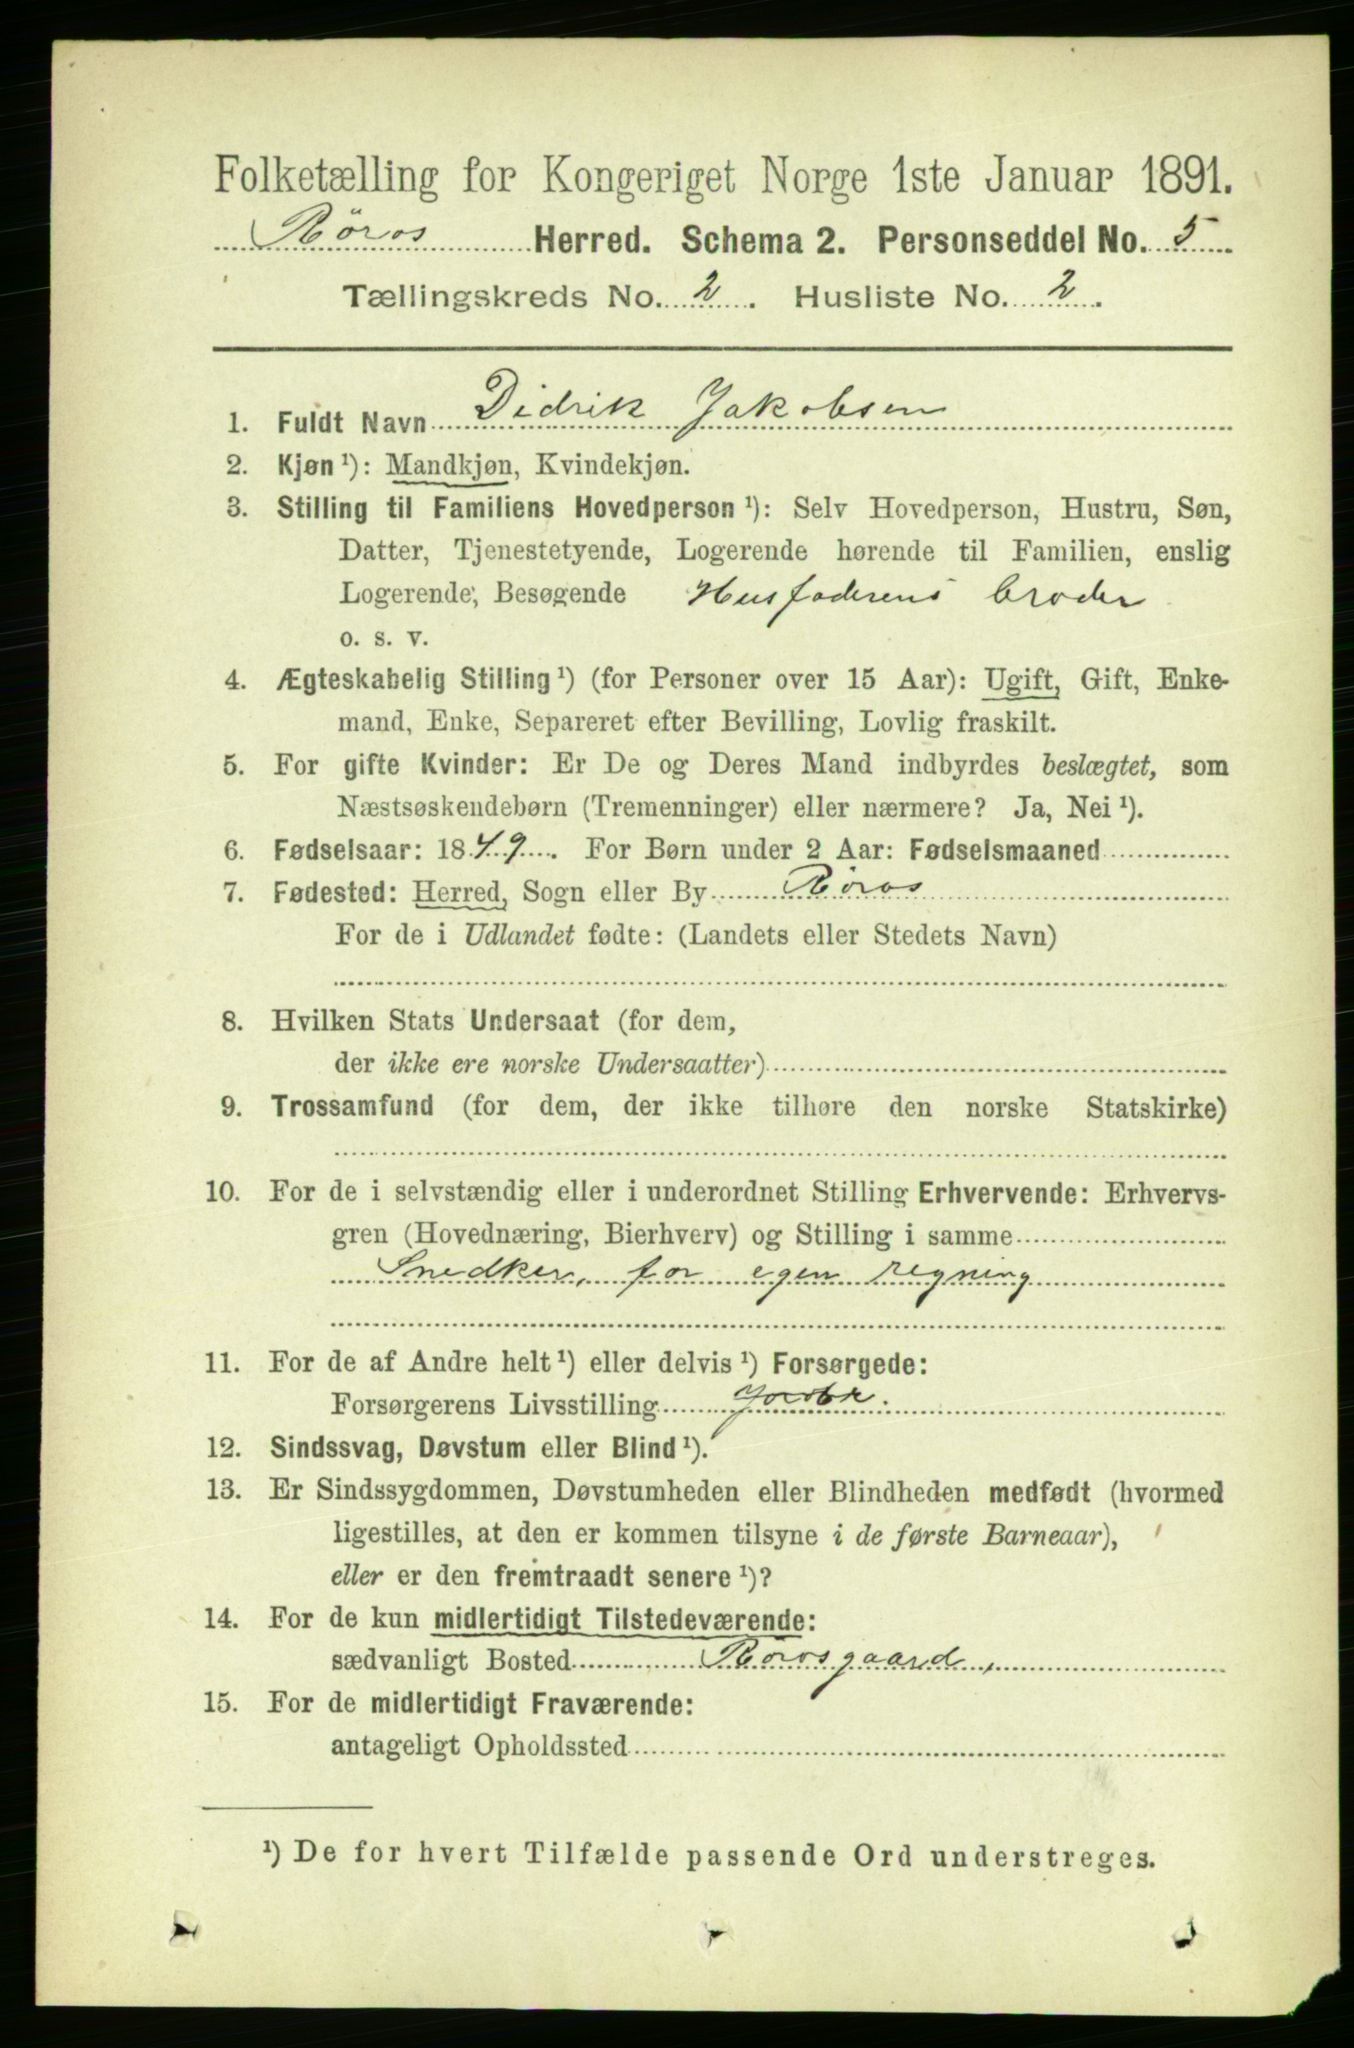 Folketælling for Kongeriget Norge 1ste Januar 1891.
Röros Herred. Schema 2. Personseddel No. 5
Tællingskreds No. 2. Husliste No. 2.
1. Fuldt Navn Didrik Jakobsen
2. Kjøn ¹): Mandkjøn, Kvindekjøn.
3. Stilling til Familiens Hovedperson ¹): Selv Hovedperson, Hustru, Søn,
Datter, Tjenestetyende, Logerende hørende til Familien, enslig
Logerende, Besøgende Husfaderens broder
o. s. v.
4. Ægteskabelig Stilling ¹) (for Personer over 15 Aar): Ugift, Gift, Enke-
mand, Enke, Separeret efter Bevilling, Lovlig fraskilt.
5. For gifte Kvinder: Er De og Deres Mand indbyrdes beslægtet, som
Næstsøskendebørn (Tremenninger) eller nærmere? Ja, Nei ¹).
6. Fødselsaar: 1849. For Børn under 2 Aar: Fødselsmaaned
7. Fødested: Herred, Sogn eller By Röros
For de i Udlandet fødte: (Landets eller Stedets Navn)
8. Hvilken Stats Undersaat (for dem,
der ikke ere norske Undersaatter)
9. Trossamfund (for dem, der ikke tilhøre den norske Statskirke)
10. For de i selvstændig eller i underordnet Stilling Erhvervende: Erhvervs-
gren (Hovednæring, Bierhverv) og Stilling i samme
Snedker, for egen regning
11. For de af Andre helt ¹) eller delvis ¹) Forsørgede:
Forsørgerens Livsstilling
12. Sindssvag, Døvstum eller Blind ¹).
13. Er Sindssygdommen, Døvstumheden eller Blindheden medfødt (hvormed
ligestilles, at den er kommen tilsyne i de første Barneaar),
eller er den fremtraadt senere ¹)?
14. For de kun midlertidigt Tilstedeværende:
sædvanligt Bosted Rörosgaard,
15. For de midlertidigt Fraværende:
antageligt Opholdssted
¹) De for hvert Tilfælde passende Ord understreges.